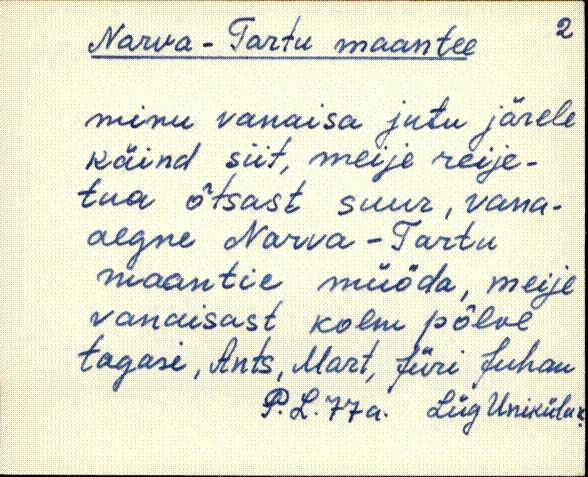 2
Narva-Tartu maantee
minu vanaisa jutu järele
käind siit, meije reije-
tua õtsast suur, vana-
aegne Narva-Tartu
maantie müöda, meije
vanaisast kolm põlve
tagasi, Ants, Mart, Jüri Juhan
P. L. 77a. Lüg Uniküla k.